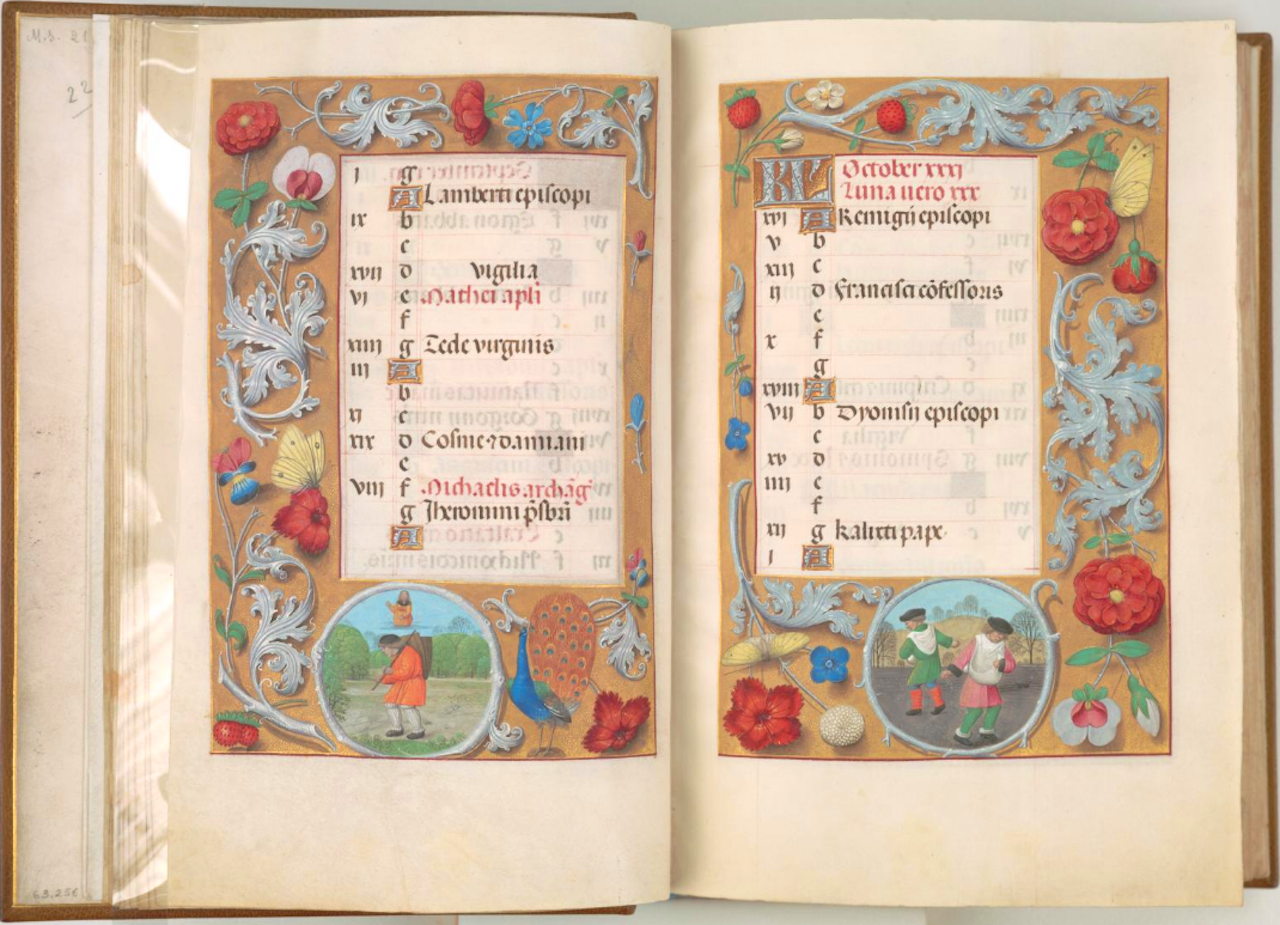 Ms. 21
22
63.256
i g
A Lamberti episcopi
ix b
c
xvii d vigilia
vi e Mathei apli
f
xiiii g Tecle virginis
iii A
b
xi c
xix d Cosme ⁊ damiani
e
viii f Michaelis archāg
g Jheronimi p̄sbr̄i
A
KL October xxxj
Luna uero xxx
xvi A Remigij episcopi
v b
xiii c
ii d Francisci cōfessoris
e
x f
g
xviii A
vii b Dyonisij episcopi
c
xv d
iiii e
f
xii g Kalixti pape
i A